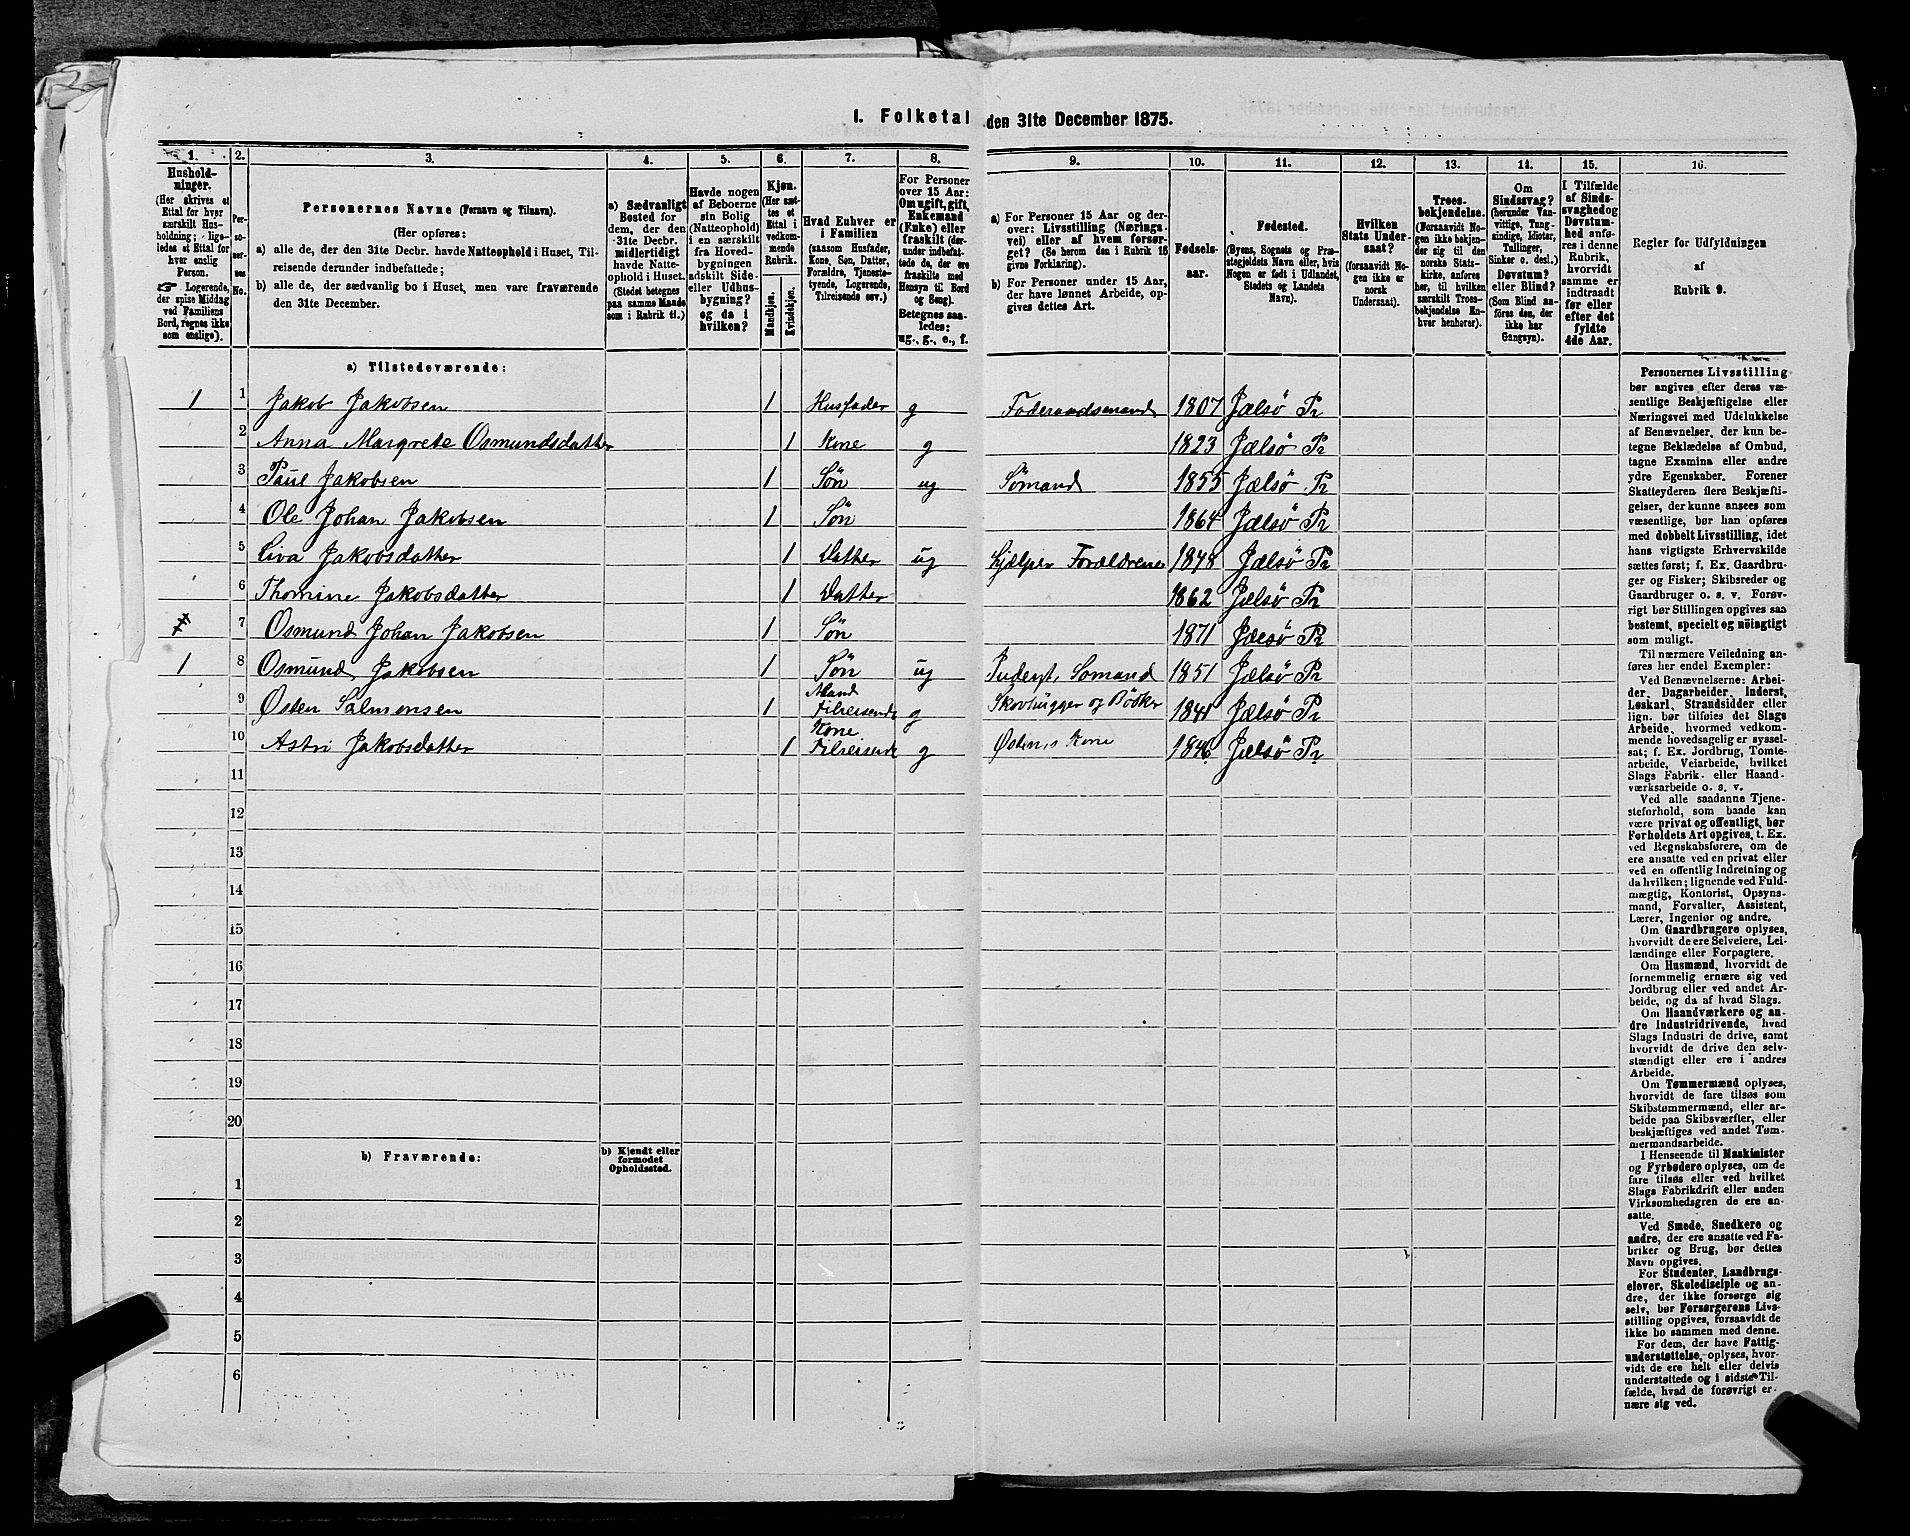 1. Folketal den 31te December 1875.
1. 2. 3. 4. 5. 6. 7. 8. 9. 10. 11. 12. 13. 14. 15. 16.
Hushold-
ninger.
(Her skrives et
Ettal for hver
særskilt Hus-
holdning; lige-
ledes et Ettal for
hver enslig
Person.
☞ Logerende,
der spise Middag
ved Familiens
Bord, regnes ikke
som enslige).
Per-
so-
ner-
nes
No.
Personernes Navne (Fornavn og Tilnavn).
(Her opføres:
a) alle de, der den 31te Decbr. havde Natteophold i Huset, Til-
reisende derunder indbefattede;
b) alle de, der sædvanlig bo i Huset, men vare fraværende
den 31te December.
a) Sædvanligt
Bosted for
dem, der den
31te Decbr.
midlertidigt
havde Natte-
ophold i Huset.
(Stedet betegnes
paa samme Maade
som i Rubrik 11.)
Havde nogen
af Beboerne
sin Bolig
(Natteophold)
i en særskilt
fra Hoved-
bygningen
adskilt Side-
eller Udhus-
bygning?
og da i
hvilken?
Kjøn.
(Her sæt-
tes et
Ettal i
vedkom-
mende
Rubrik.
Mandkjøn.
Kvindekjøn.
Hvad Enhver er
i Familien
(saasom Husfader,
Kone, Søn, Datter,
Forældre, Tjeneste-
tyende, Logerende,
Tilreisende osv.)
For Personer
over 15 Aar:
Om ugift, gift,
Enkemand
(Enke) eller
fraskilt (der-
under indbefat-
tede de, der ere
fraskilte med
Hensyn til Bord
og Seng).
Betegnes saa-
ledes:
ug., g., e., f.
a) For Personer 15 Aar og der-
over: Livsstilling (Nærings-
vei) eller af hvem forsør-
get? (Se herom den i Rubrik 16
givne Forklaring).
b) For Personer under 15 Aar,
der have lønnet Arbeide, op-
gives dettes Art.
Fødsels-
aar.
Fødested.
(Byens, Sognets og Præ-
stegjeldets Navn eller, hvis
Nogen er født i Udlandet,
Stedets og Landets
Navn).
Hvilken
Stats Under-
saat?
(forsaavidt No-
gen ikke er
norsk
Undersaat).
Troes-
bekjendelse.
(Forsaavidt No-
gen ikke bekjen-
der sig til den
norske Stats-
kirke, anføres
her, til hvilken
særskilt Troes-
bekjendelse En-
hver henhører).
Om
Sindssvag?
(herunder Van-
vittige, Tung-
sindige, Idioter,
Tullinger,
Sinker o. desl.)
Døvstum?
eller Blind?
(Som Blind an-
føres den, der
ikke har
Gangsyn).
I Tilfælde
af Sinds-
svaghed og
Døvstum-
hed anfø-
res i denne
Rubrik,
hvorvidt
samme er
indtraadt
før eller
efter det
fyldte
4de Aar.
Regler for Udfyldningen
af
Rubrik 9.
a) Tilstedeværende:
1 1 Jakob Jakobsen 1 Husfader g Føderaadsmand 1807 Jælsø Pr
2 Anna Margrete Osmundsdatter 1 Kone g 1823 Jælsø Pr
3 Paul Jakobsen 1 Søn ug Sømand 1855 Jælsø Pr
4 Ole Johan Jakobsen 1 Søn 1864 Jælsø Pr
5 Siva Jakobsdatter 1 Datter ug Hjælper Forældrene 1848 Jælsø Pr
6 Thomine Jakobsdatter 1 Datter 1862 Jælsø Pr
7 Osmund Johan Jakobsen 1 Søn 1871 Jælsø Pr
1 8 Osmund Jakobsen 1 Søn ug Inderst, Sømand 1851 Jælsø Pr
9 Østen Salmonsen 1 Mand Tilreisende g Skovhugger og Bødker 1841 Jælsø Pr
10 Astri Jakobsdatter 1 Kone Tilreisende g Østens Kone 1846 Jælsø Pr
11
12
13
14
15
16
17
18
19
20
b) Fraværende:
b) Kjendt eller
formodet
Opholdssted.
1
2
3
4
5
6
Personernes Livsstilling
bør angives efter deres væ-
sentlige Beskjæftigelse eller
Næringsvei med Udelukkelse
af Benævnelser, der kun be-
tegne Beklædelse af Ombud,
tagne Examina eller andre
ydre Egenskaber. Forener
Skatteyderen flere Beskjæfti-
gelser, der kunne ansees som
væsentlige, bør han opføres
med dobbelt Livsstilling, idet
hans vigtigste Erhvervskilde
sættes først; f. Ex. Gaardbru-
ger og Fisker; Skibsreder og
Gaardbruger o. s. v. Forøv-
rigt bør Stillingen opgives saa
bestemt, specielt og nøiagtigt
som muligt.
Til nærmere Veiledning an-
føres her endel Exempler:
Ved Benævnelserne: Arbei-
der, Dagarbeider, Inderst,
Løskarl, Strandsidder eller
lign. bør tilføies det Slags
Arbeide, hvormed vedkom-
mende hovedsagelig er syssel-
sat; f. Ex. Jordbrug, Tomte-
arbeide, Veiarbeide, hvilket
Slags Fabrik- eller Haand-
værksarbeide o. s. v.
Ved alle saadanne Tjene-
steforhold, som baade kan
være privat og offentligt, bør
Forholdets Art opgives, t. Ex.
ved Regnskabsførere, om de
ere ansatte ved en privat eller
ved en offentlig Indretning og
da hvilken; lignende ved Fuld-
mægtig, Kontorist, Opsyns-
mand, Forvalter, Assistent,
Lærer, Ingeniør og andre.
Om Gaardbrugere oplyses,
hvorvidt de ere Selveiere, Lei-
lændinge eller Forpagtere.
Om Husmænd, hvorvidt de
fornemmelig ernære sig ved
Jordbrug eller ved andet Ar-
beide, og da af hvad Slags.
Om Haandværkere og an-
dre Industridrivende, hvad
Slags Industri de drive, samt
hvorvidt de drive den selv-
stændigt eller ere i andres
Arbeide.
Om Tømmermænd oplyses,
hvorvidt de fare tilsøs som
Skibstømmermænd, eller ar-
beide paa Skibsværfter, eller
beskjæftiges ved andet Tøm-
mermandsarbeide.
I Henseende til Maskinister
og Fyrbødere oplyses, om de
fare tilsøs eller ved hvilket
Slags Fabrikdrift eller anden
Virksomhedsgren de ere an-
satte.
Ved Smede, Snedkere og
andre, der ere ansatte ved Fa-
briker og Brug, bør dettes
Navn opgives.
For Studenter, Landbrugs-
elever, Skoledisciple og an-
dre, der ikke forsørge sig
selv, bør Forsørgerens Livs-
stilling opgives, forsaavidt de
ikke bo sammen med denne.
For dem, der have Fattig-
understøttelse, oplyses, hvor-
vidt de ere helt eller delvis
understøttede og i sidste Til-
fælde, hvad de forøvrigt er-
nære sig ved.